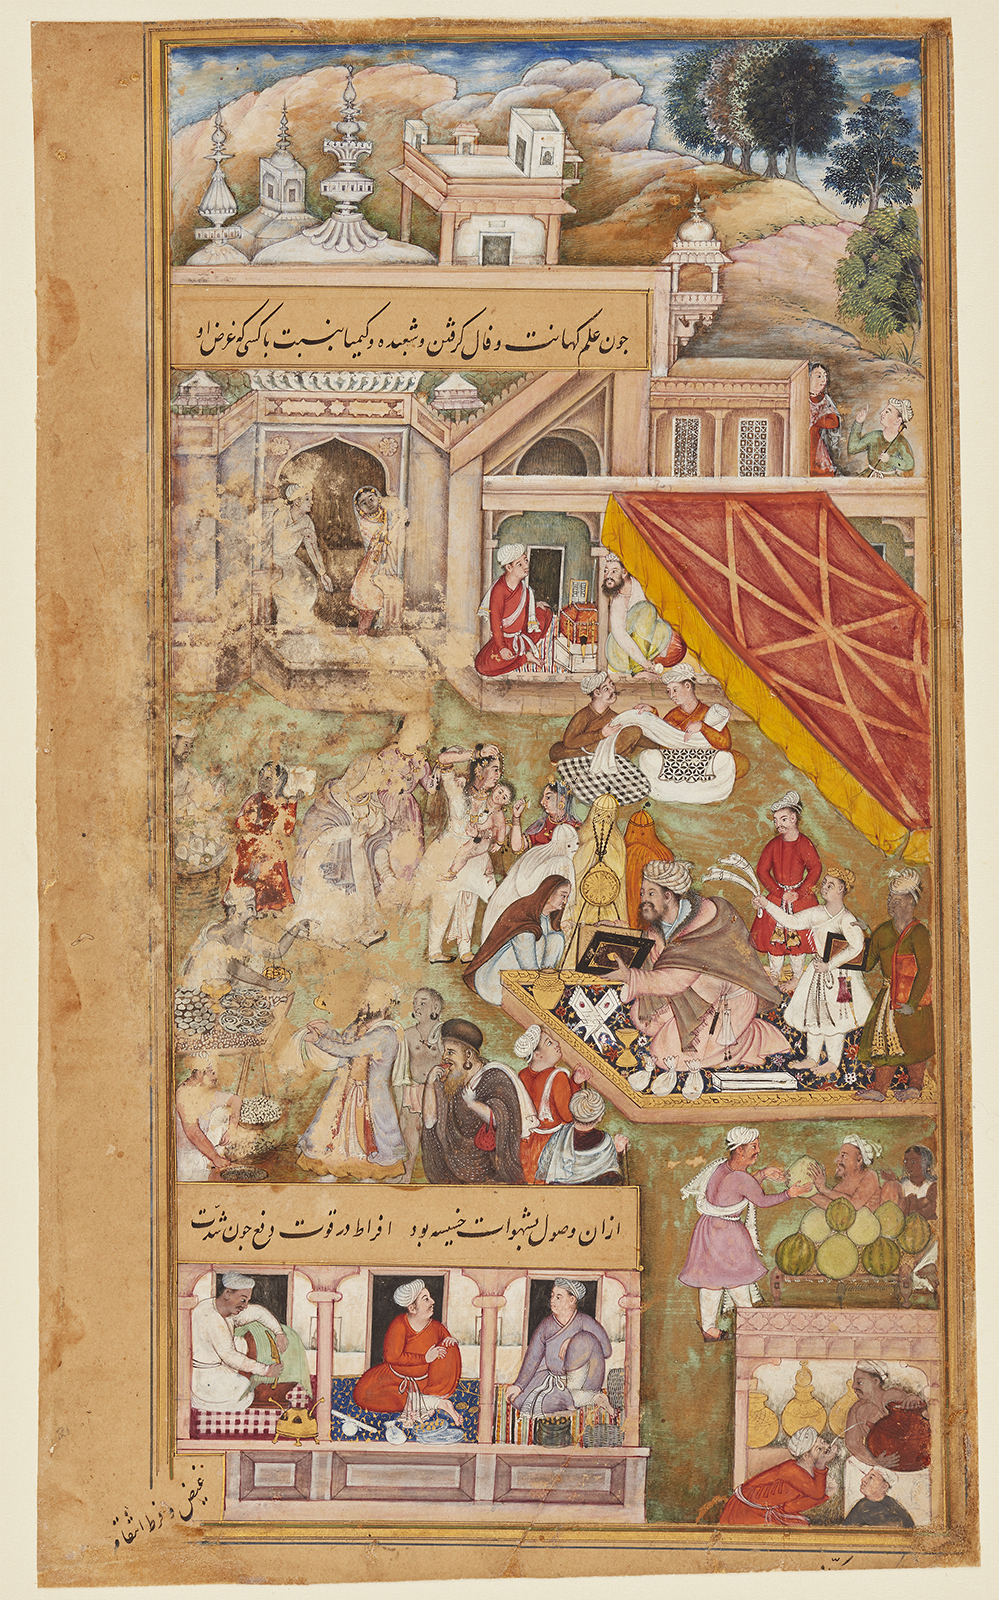 چون علم کهانت و فال گرفتن و شعبده و کیمیا بنسبت با کسی که غرض او
ازان وصول بشهوات خسیسه بود افراط در قوت دفع چون شدّت
غیض و فرط انتقام